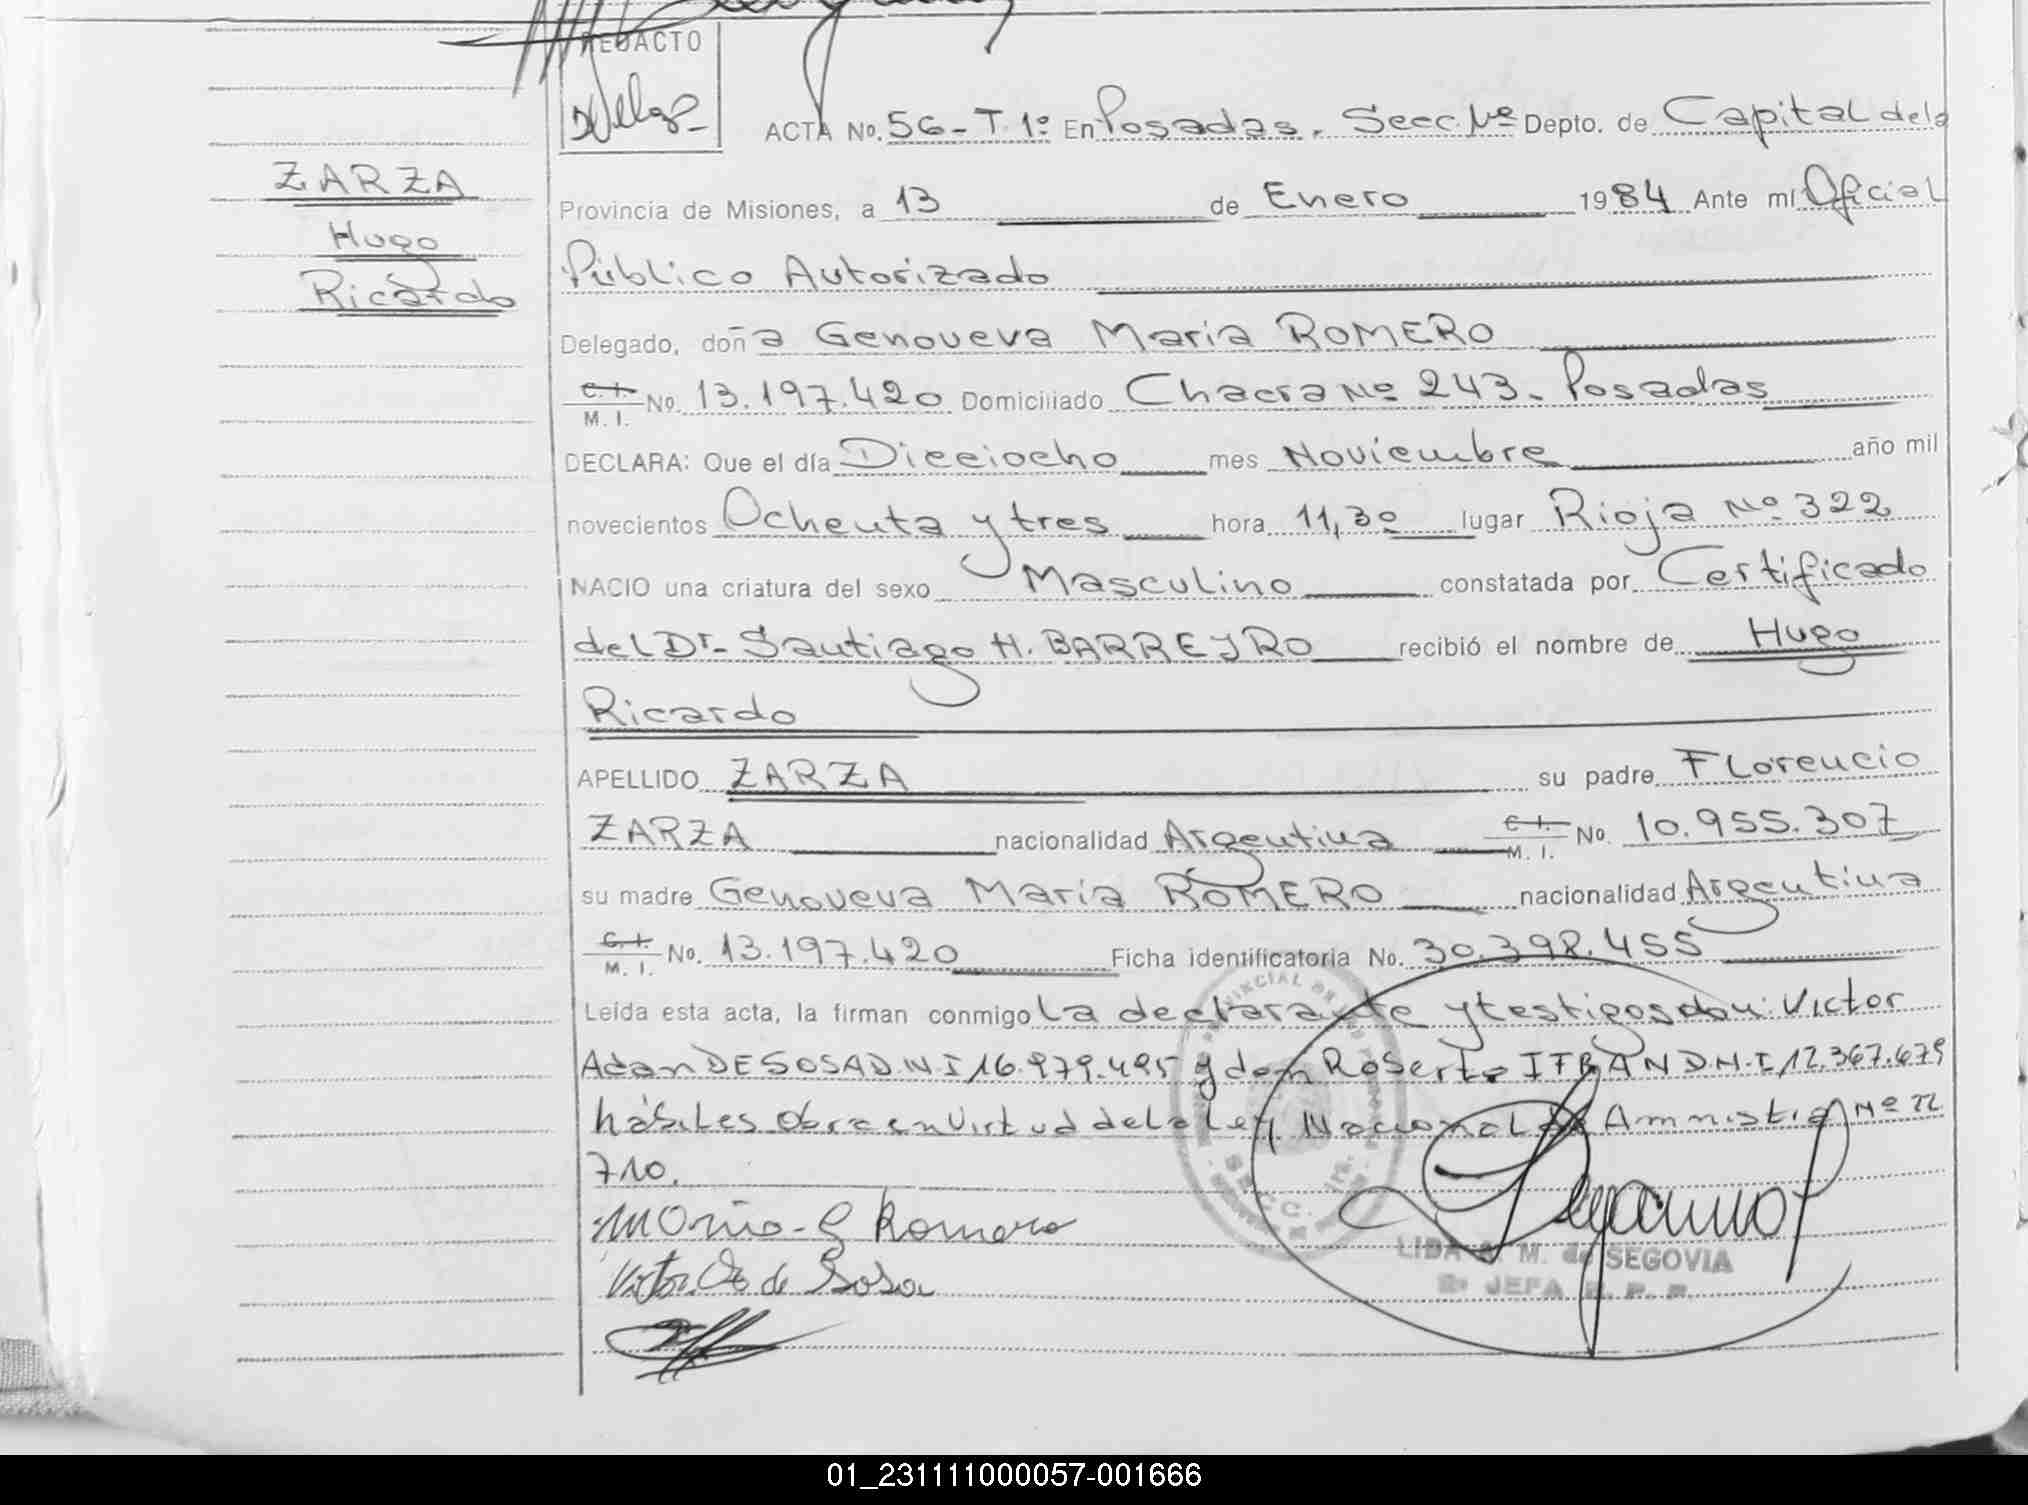 REDACTO
ACTA No. 56 - T. 1º En Posadas. Secc. 1ª Depto. de Capital de la
ZARZA
Hugo
Ricardo
Provincia de Misiones, a 13 de Enero 1984 Ante mí Oficial
Público Autorizado
Delegado, doña Genoveva Maria ROMERO
C. I. M. I. No. 13.197.420 Domiciliado Chacra Nº 243. Posadas
DECLARA: Que el día Dieciocho mes Noviembre año mil
novecientos Ochenta y tres hora 11,30 lugar Rioja Nº 322
NACIO una criatura del sexo Masculino constatada por Certificado
del Dr. Santiago H. BARREJRO recibió el nombre de Hugo
Ricardo
APELLIDO ZARZA su padre Florencio
ZARZA nacionalidad Argentina C. I. M. I. No. 10.955.307
su madre Genoveva María ROMERO nacionalidad Argentina
C. I. M. I. No. 13.197.420 Ficha identificatoria No. 30.398.455
Leída esta acta, la firman conmigo La declarante y testigos don: Victor
Adan DE SOSA D.N.I 16.979.495 y don Roberto D.N.I 12.367.679
hábiles Obra en virtud de la Ley Nacional de Amnistia Nº 22
710.
Maria G Romero
Victor A de Sosa
LIDA M. de SEGOVIA
2ª JEFA R. P. P.
01_231111000057-001666